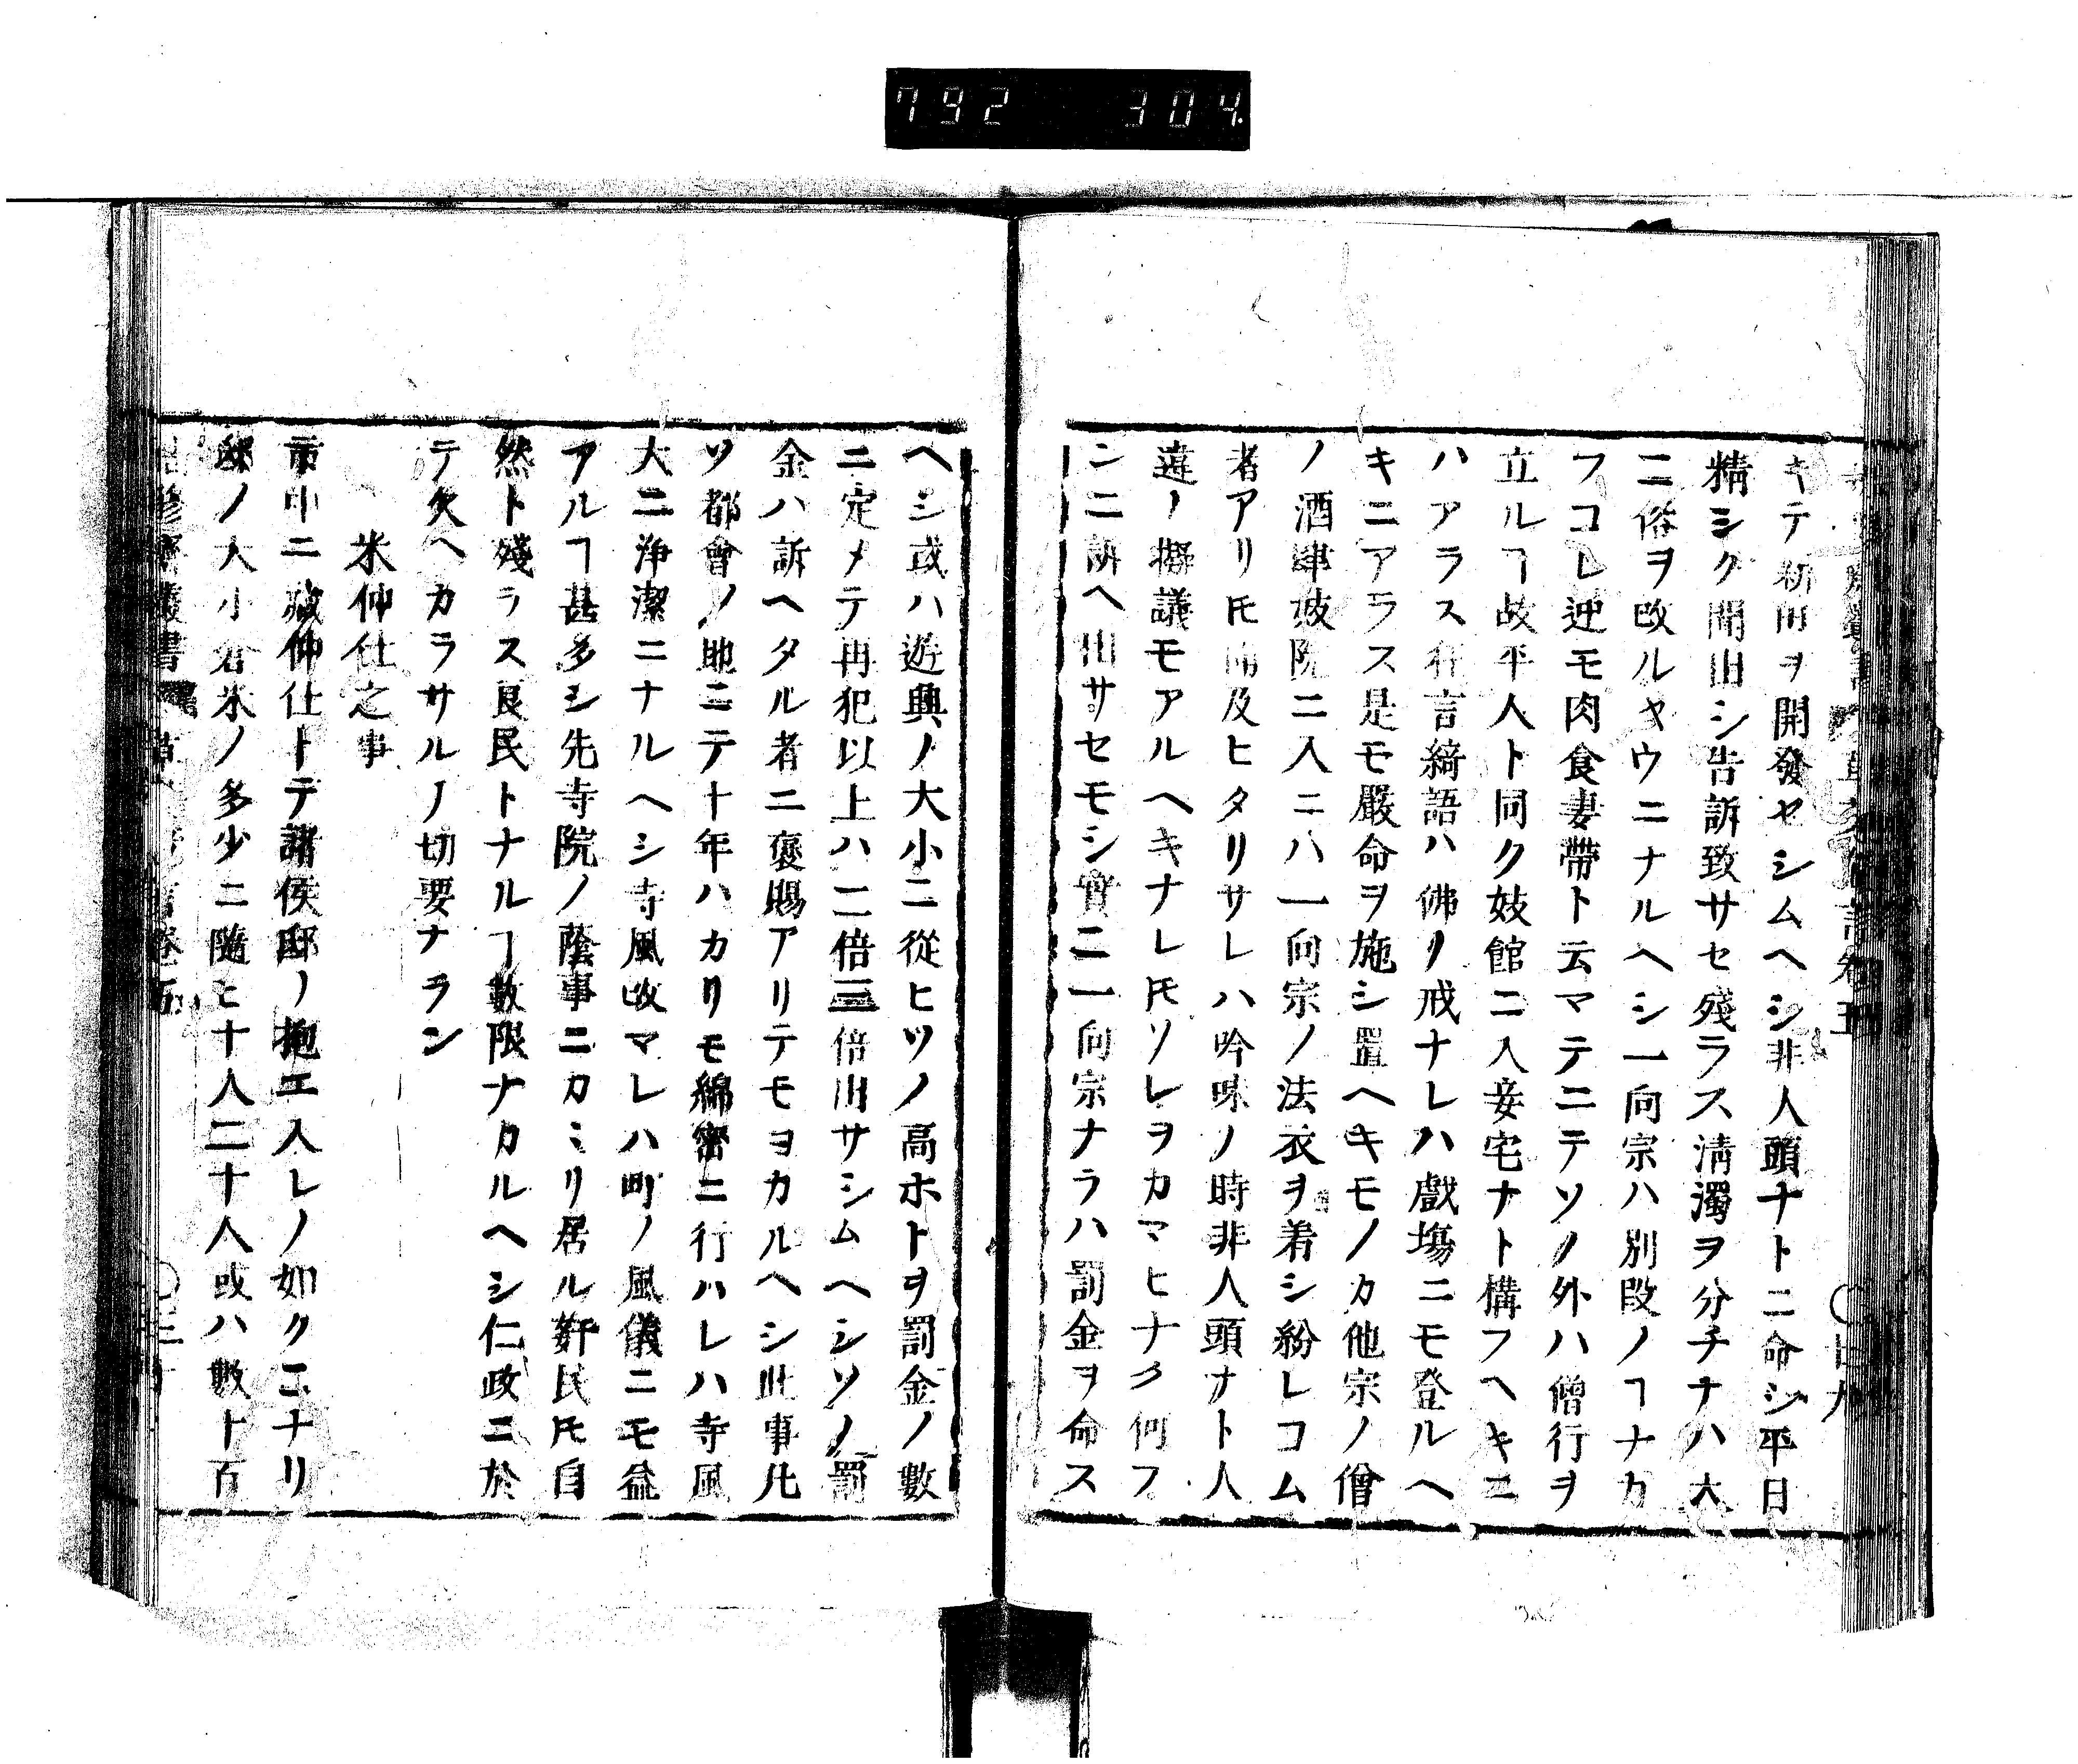 792 304
キテ新田ヲ開發セシムヘシ非人頭ナトニ命シ平日
精シク聞出シ告訴致サセ殘ラス淸濁ヲ分チナハ大
ニ俗ヲ改ルヤウニナルヘシ一向宗ハ別段ノヿナカ
フコレ迚モ肉食妻帶ト云マテニテソノ外ハ僧行ヲ
立ルヿ故平人ト同ク妓館ニ入妾宅ナト構フヘキニ
ハアラス狂言綺語ハ佛ノ戒ナレハ戲塲ニモ登ルヘ
キニアラス是モ嚴命ヲ施シ置ヘキモノカ他宗ノ僧
ノ酒肆妓院ニ入ニハ一向宗ノ法衣ヲ着シ紛レコム
者アリ𪜈前及ヒタリサレハ吟味ノ時非人頭ナト人
違ノ擬議モアルヘキナレ𪜈ソレヲカマヒナク何フ
シニ訴ヘ出サセモシ實ニ一向宗ナラハ罰金ヲ命ス
ヘシ或ハ遊興ノ大小ニ從ヒツノ高ホトヲ罰金ノ數
ニ定メテ再犯以上ハ二倍三倍出サシムヘシソノ罰
金ハ訴ヘタル者ニ褒賜アリテモヨカルヘシ此事凡
ソ都會ノ地ニテ十年ハカリモ綿密ニ行ハレハ寺風
大ニ浄潔ニナルヘシ寺風改マレハ町ノ風儀ニモ益
アルヿ甚多シ先寺院ノ蔭事ニカミリ居ル姧民𪜈自
然ト殘ラス良民トナルヿ數限ナカルヘシ仁政ニ於
テ欠ヘカラサルノ切要ナラン
米仲仕之事
市中ニ藏仲仕トテ諸侯邸ノ抱エ入レノ如クニナリ
邸ノ大小君米ノ多少ニ隨ヒ十人二十人或ハ數ト百